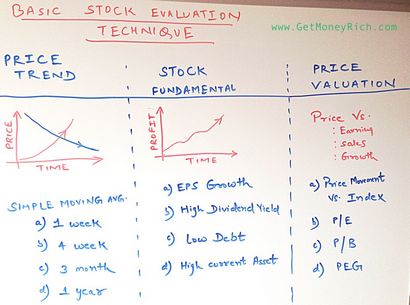 BASIC STOCK EVALUATION
TECHNIQUE
www.GetMoneyRich.com
PRICE
TREND
PRICE
TIME
SIMPLE MOVING AVG.
a) 1 week
b) 4 week
c) 3 month
d) 1 year
STOCK
FUNDAMENTAL
PROFIT
TIME
a) EPS Growth
b) High Dividend Yield
c) Low Debt
d) High current Asset
PRICE
VALUATION
Price Vs.
: Earning
: sales
: Growth
a) Price Movement
vs. Index
b) P/E
c) P/B
d) PEG